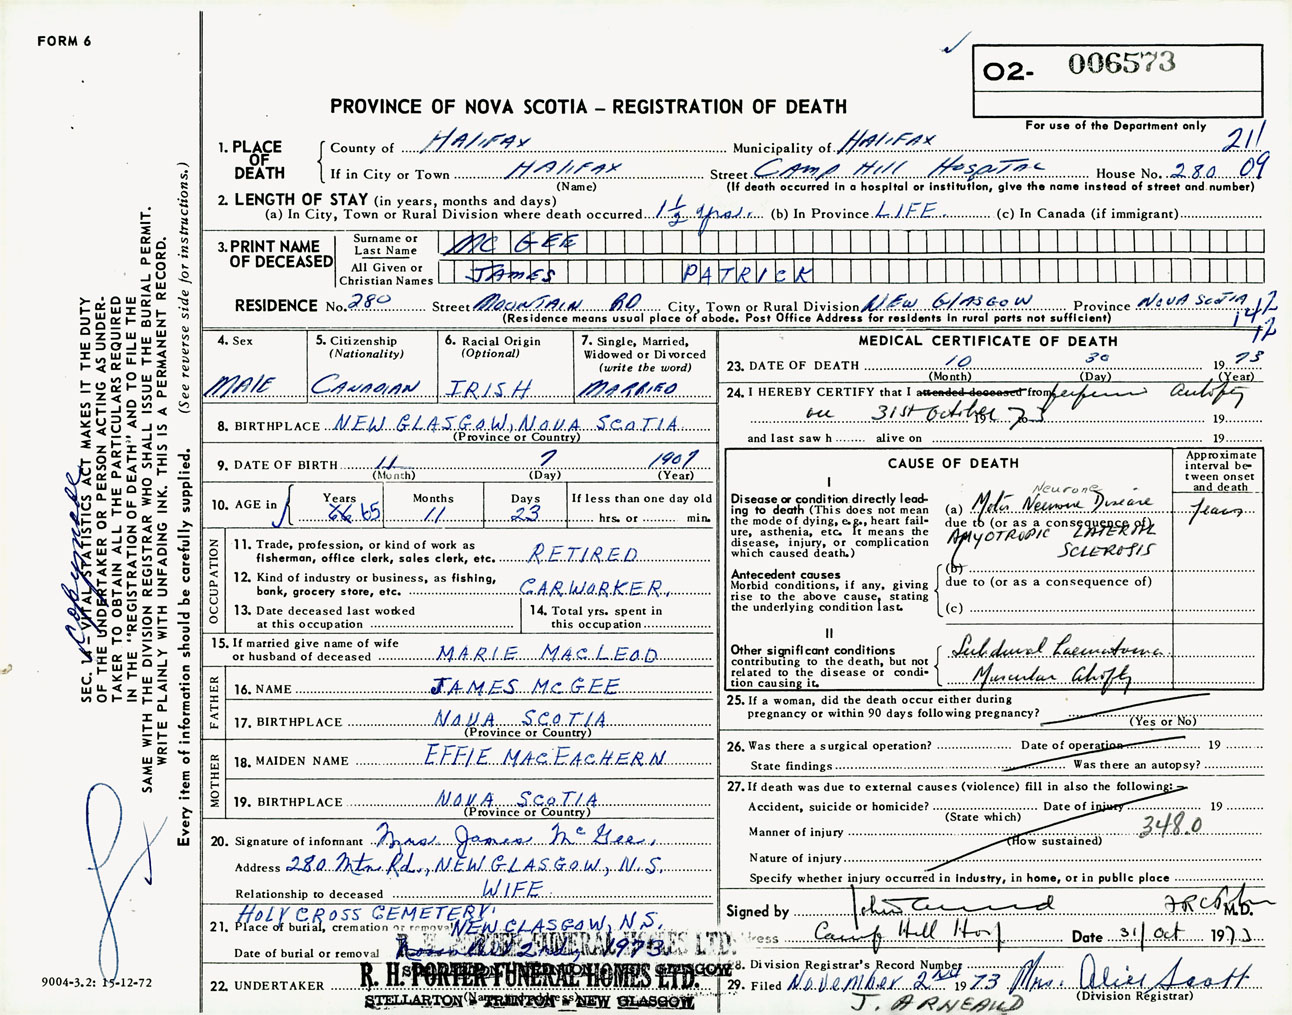 FORM 6
O2- 006573
For use of the Department only
PROVINCE OF NOVA SCOTIA – REGISTRATION OF DEATH
211
09
1. PLACE OF DEATH
County of HALIFAX Municipality of HALIFAX
If in City or Town HALIFAX Street CAMP HILL HOSPITAL House No. 280
(Name) (If death occurred in a hospital or institution, give the name instead of street and number)
2. LENGTH OF STAY (in years, months and days)
(a) In City, Town or Rural Division where death occurred 1½ yrs. (b) In Province LIFE (c) In Canada (if immigrant)
3. PRINT NAME OF DECEASED
Surname or Last Name MC GEE
All Given or Christian Names JAMES PATRICK
RESIDENCE No. 280 Street MOUNTAIN RD City, Town or Rural Division NEW GLASGOW Province NOVA SCOTIA
(Residence means usual place of abode. Post Office Address for residents in rural parts not sufficient)
142
12
4. Sex MALE
5. Citizenship (Nationality) CANADIAN
6. Racial Origin (Optional) IRISH
7. Single, Married, Widowed or Divorced (write the word) MARRIED
8. BIRTHPLACE NEW GLASGOW, NOVA SCOTIA
(Province or Country)
9. DATE OF BIRTH 11 7 1907
(Month) (Day) (Year)
10. AGE in Years 66 65 Months 11 Days 23 If less than one day old hrs. or min.
OCCUPATION
11. Trade, profession, or kind of work as fisherman, office clerk, sales clerk, etc. RETIRED
12. Kind of industry or business, as fishing, bank, grocery store, etc. CARWORKER.
13. Date deceased last worked at this occupation
14. Total yrs. spent in this occupation
15. If married give name of wife or husband of deceased MARIE MACLEOD
FATHER
16. NAME JAMES MCGEE
17. BIRTHPLACE NOVA SCOTIA
(Province or Country)
MOTHER
18. MAIDEN NAME EFFIE MACEACHERN
19. BIRTHPLACE NOVA SCOTIA
(Province or Country)
20. Signature of informant Mrs James McGee,
Address 280 Mtn Rd., NEW GLASGOW, N.S.
Relationship to deceased WIFE
HOLY CROSS CEMETERY,
21. Place of burial, cremation or removal NEW GLASGOW, N.S.
Date of burial or removal 1973
22. UNDERTAKER
R. H. PORTER FUNERAL HOMES LTD.
STELLARTON - TRENTON - NEW GLASGOW
MEDICAL CERTIFICATE OF DEATH
23. DATE OF DEATH 10 30 1973
(Month) (Day) (Year)
24. I HEREBY CERTIFY that I attended deceased from perform autopsy
on 31st October 19 73 19
and last saw h alive on 19
CAUSE OF DEATH
Approximate interval between onset and death
I
Disease or condition directly leading to death (This does not mean the mode of dying, e.g., heart failure, asthenia, etc. It means the disease, injury, or complication which caused death.)
Neurone
(a) Motor Neurone Disease years
due to (or as a consequence of)
AMYOTROPIC LATERAL
SCLEROSIS
Antecedent causes
Morbid conditions, if any, giving rise to the above cause, stating the underlying condition last.
(b)
due to (or as a consequence of)
(c)
II
Other significant conditions contributing to the death, but not related to the disease or condition causing it.
Subdural haematoma
Muscular atrophy
25. If a woman, did the death occur either during pregnancy or within 90 days following pregnancy?
(Yes or No)
26. Was there a surgical operation? Date of operation 19
State findings Was there an autopsy?
27. If death was due to external causes (violence) fill in also the following:
Accident, suicide or homicide? Date of injury 19
(State which)
Manner of injury 348.0
(How sustained)
Nature of injury
Specify whether injury occurred in industry, in home, or in public place
Signed by M.D.
Address Camp Hill Hosp Date 31/Oct 1973.
28. Division Registrar's Record Number
29. Filed November 2nd 1973 Mrs. Alice Scott
(Division Registrar)
J. ARNEAUD
SEC. 14 – VITAL STATISTICS ACT MAKES IT THE DUTY
OF THE UNDERTAKER OR PERSON ACTING AS UNDER-
TAKER TO OBTAIN ALL THE PARTICULARS REQUIRED
IN THE "REGISTRATION OF DEATH" AND TO FILE THE
SAME WITH THE DIVISION REGISTRAR WHO SHALL ISSUE THE BURIAL PERMIT.
WRITE PLAINLY WITH UNFADING INK. THIS IS A PERMANENT RECORD.
Every item of information should be carefully supplied. (See reverse side for instructions.)
9004-3.2: 15-12-72